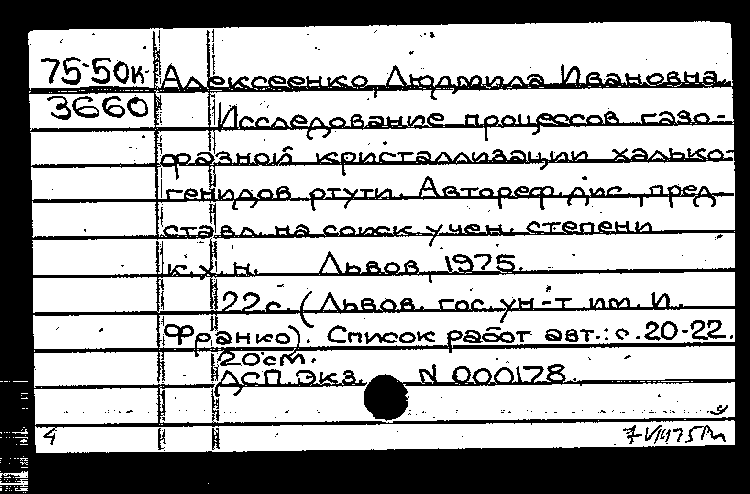 75-50к Алексеенко, Людмила Ивановна.
3660 Исследование процессов газо-
фазной кристаллизации халько-
генидов ртути. Автореф. дис., пред-
ставл. на соиск учен. степени
к.х.н. Львов, 1975.
22 с. (Львов. гос. ун-т им. И.
Франко). Список работ авт.: с. 20-22.
20см.
ДСП. Экз. N 000178.
4